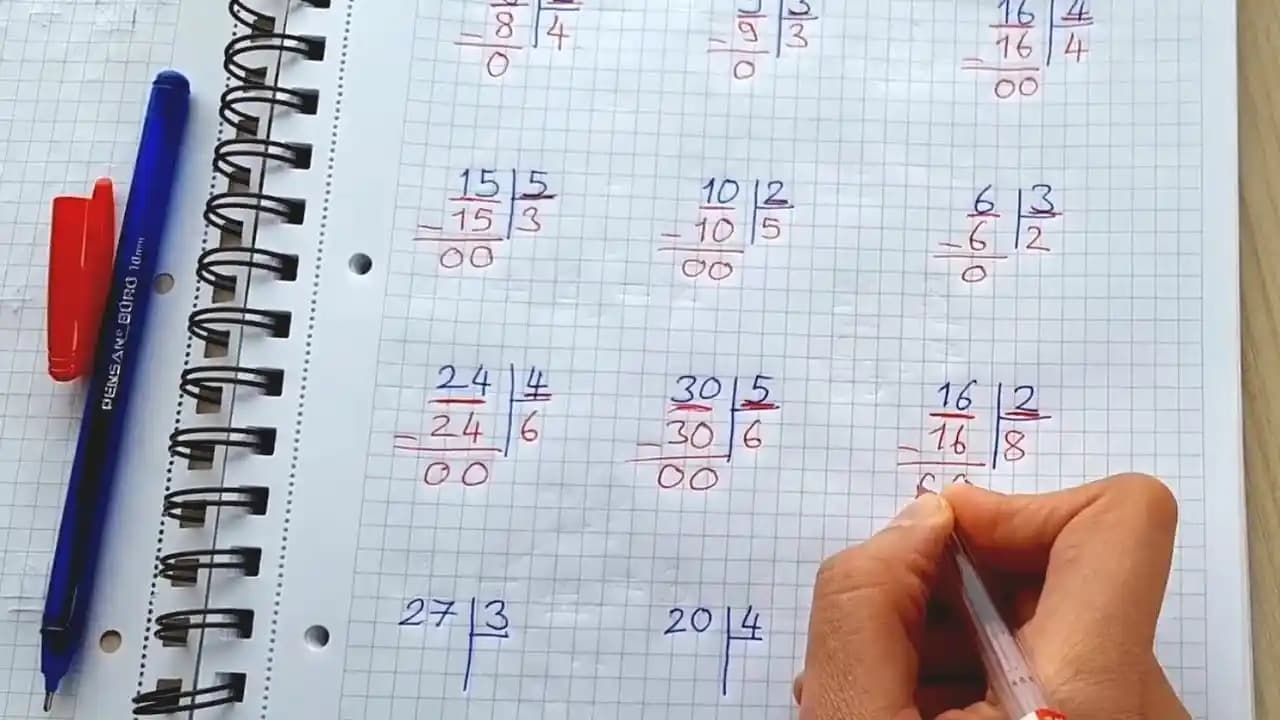 8 4
- 8
0
- 9 3
0
16 4
- 16 4
00
15 5
- 15 3
00
10 2
- 10 5
00
6 3
- 6 2
0
24 4
- 24 6
00
30 5
- 30 6
00
16 2
- 16 8
27 3
20 4
PENSAN